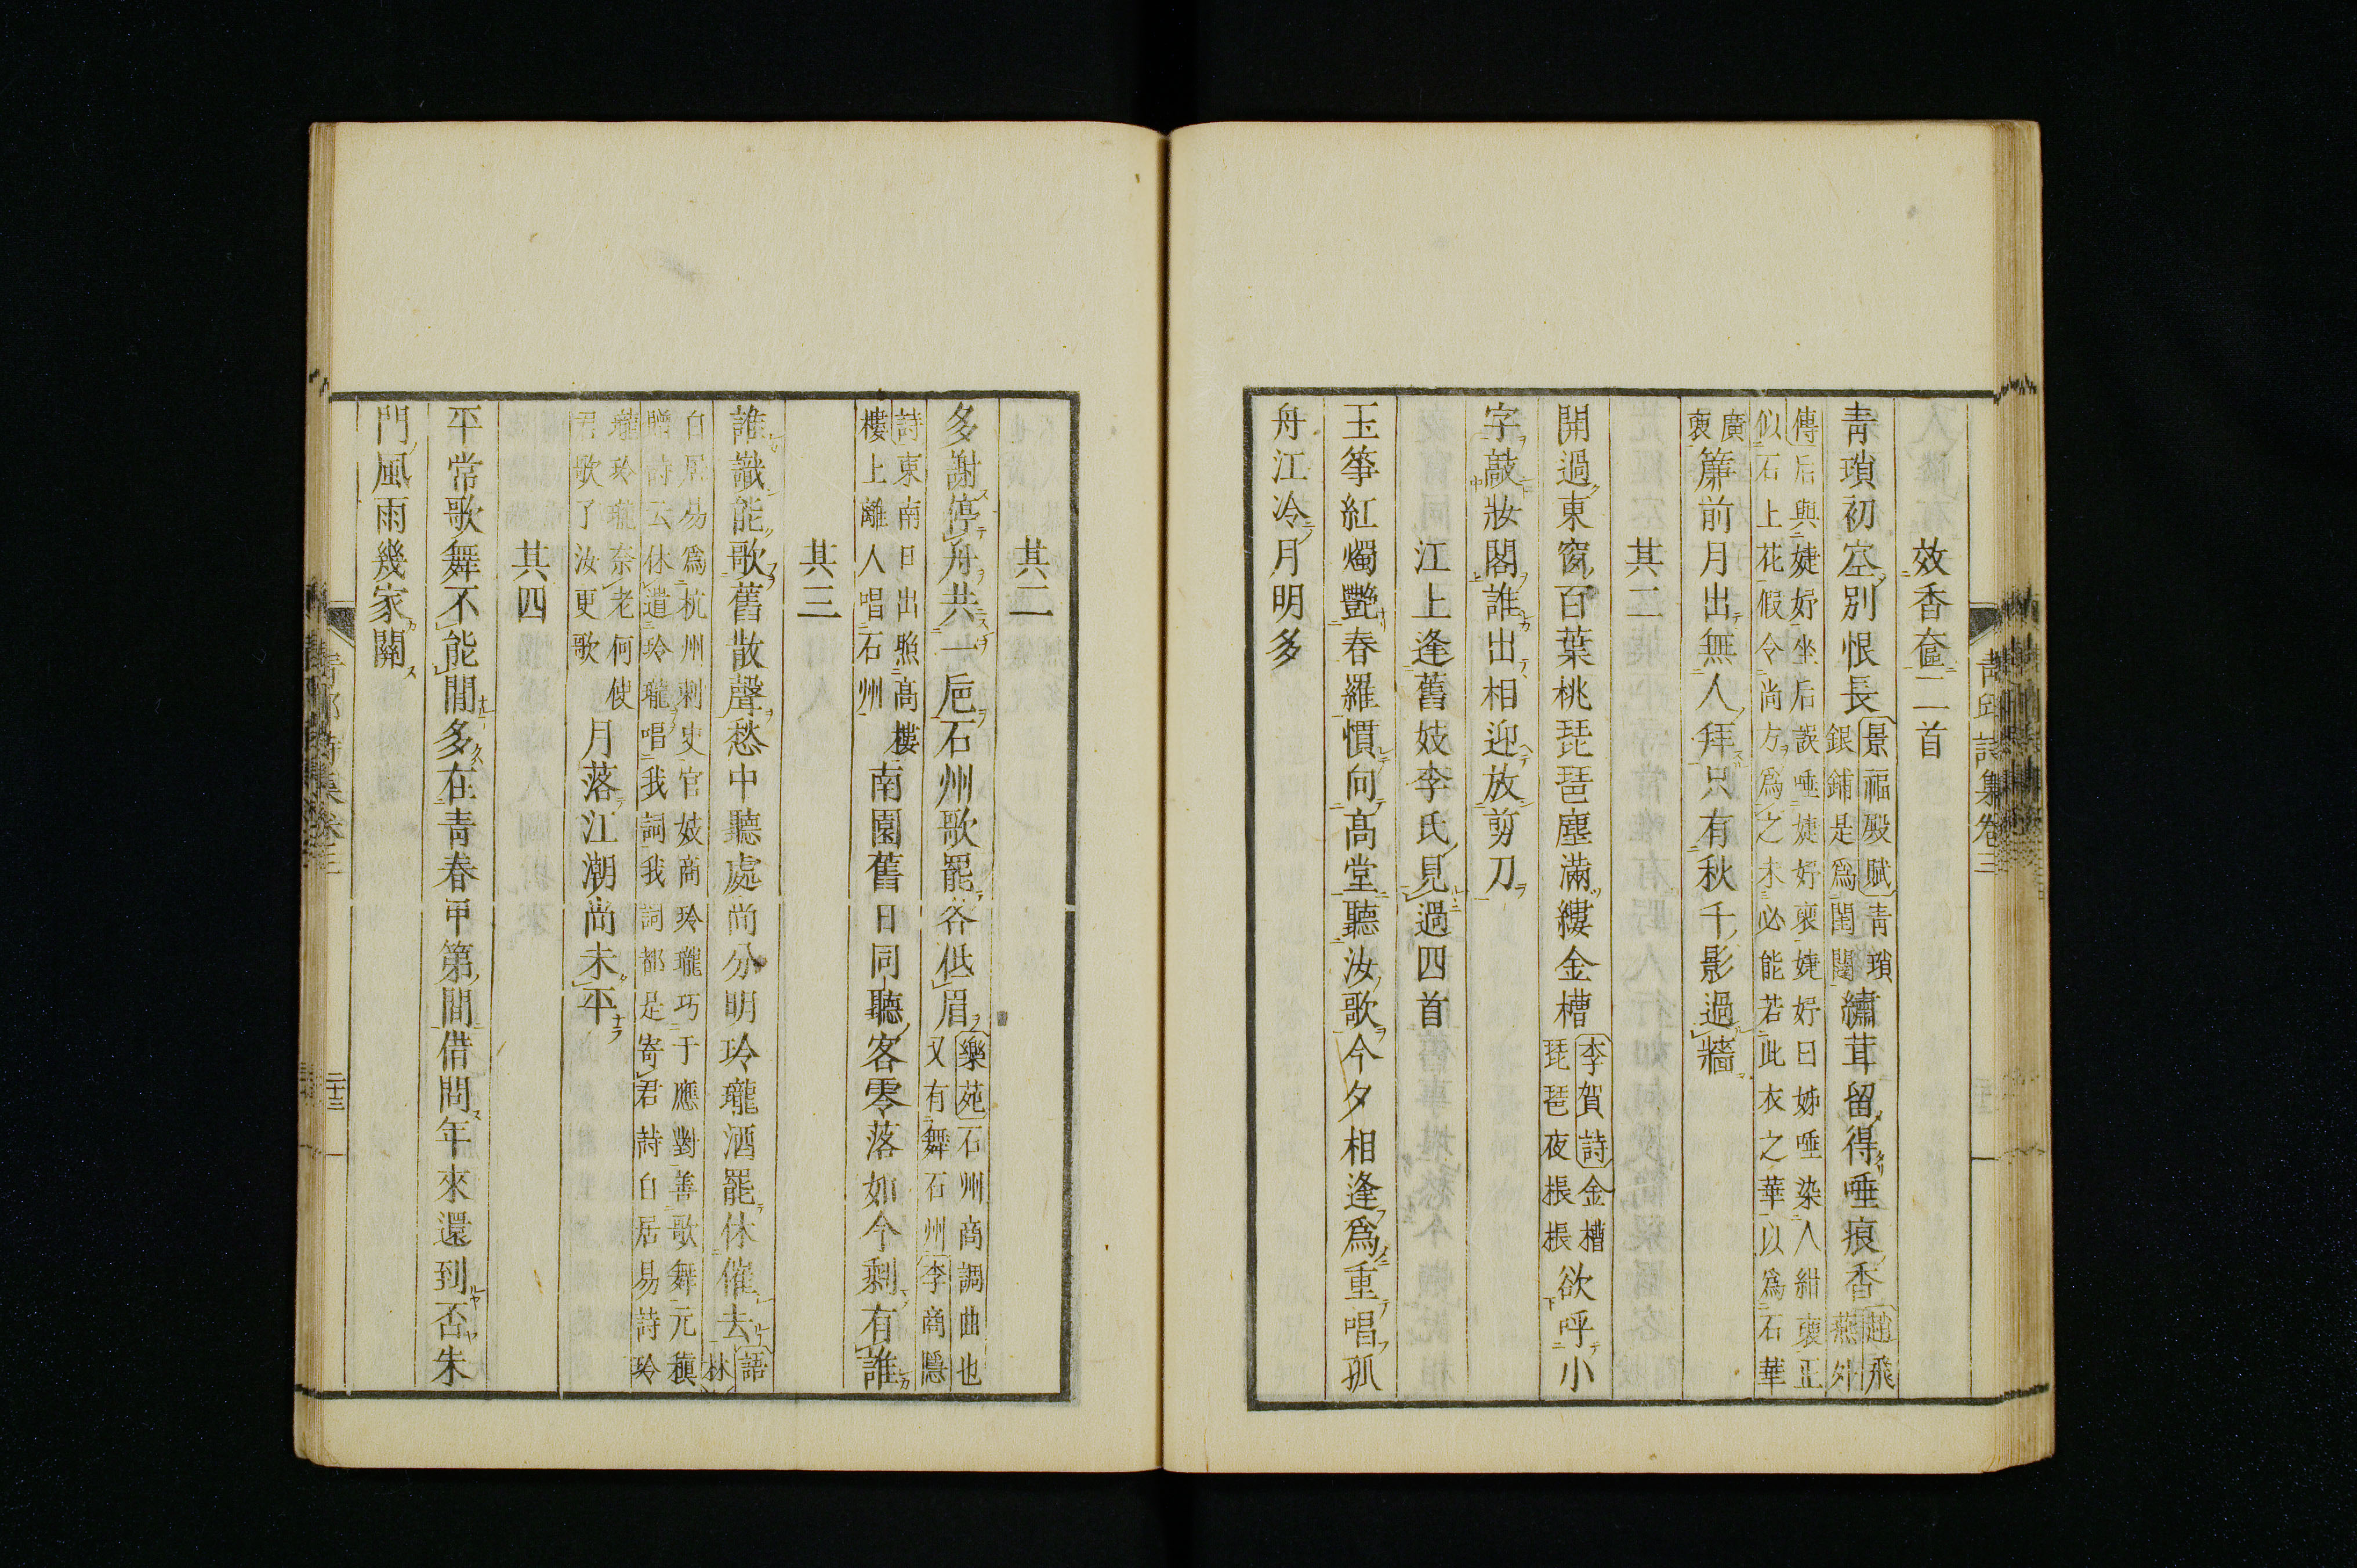 效香奩二首
青瑣初空別恨長
景福殿賦青瑣
銀鋪是爲閨闥
繡茸留得唾痕香
趙飛
燕外
傳后與婕妤坐后誤唾婕妤裛婕妤曰姊唾染人紺裛正
似石上花假令尚方爲之未必能若此衣之華以爲石華
廣
裛
簾前月出無人拜只有秋千影過牆
其二
開過東窗百葉桃琵琶塵滿縷金槽
李賀詩金槽
琵琶夜棖棖
欲呼小
字敲妝閣誰出相迎放剪刀
江上逢舊妓李氏見過四首
玉筝紅燭艷春羅慣向高堂聽汝歌今夕相逢爲重唱孤
舟江冷月明多
青邱詩集卷三
其二
多謝停舟共一巵石州歌罷各低眉
樂苑石州商調曲也
又有舞石州李商隱
詩東南日出照高樓
樓上離人唱石州
南園舊日同聽客零落如今剩有誰
其三
誰識能歌舊散聲愁中聽處尚分明玲瓏酒罷休催去
語
林
白居易爲杭州刺史官妓商玲瓏巧于應對善歌舞元稹
贈詩云休遣玲瓏唱我詞我詞都是寄君詩白居易詩玲
瓏玲瓏奈老何使
君歌了汝更歌
月落江潮尚未平
其四
平常歌舞不能閒多在青春甲第間借問年來還到否朱
門風雨幾家關
二十三